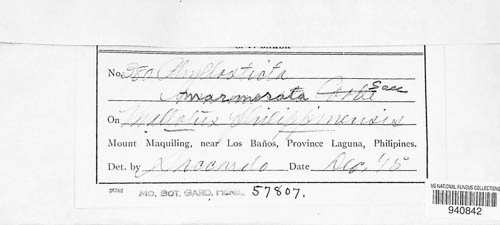 C. F. BAKER
No. 380 Phyllosticta
marmorata Cooke Sacc
On Mallotus Philippinensis
Mount Maquiling, near Los Baños, Province Laguna, Philipines.
Det. by Saccardo Date Dec. '15
MO. BOT. GARD. HERB. 57807.
US NATIONAL FUNGUS COLLECTIONS
940842